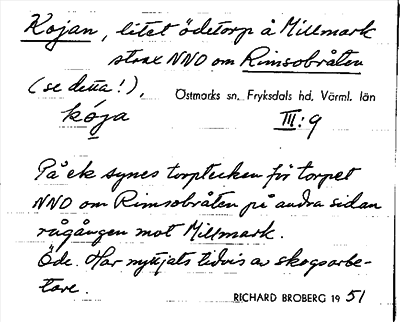 Kojan, litet ödetorp å Millmark
strax NNO om Rimsobråten
(se detta!).
Östmarks sn, Fryksdals hd, Värml. län
kója
III:9
På ek synes torptecken för torpet
NNO om Rimsobråten på andra sidan
rågången mot Millmark.
Öde. Har nyttjats tidvis av skogsarbe-
tare.
RICHARD BROBERG 1951